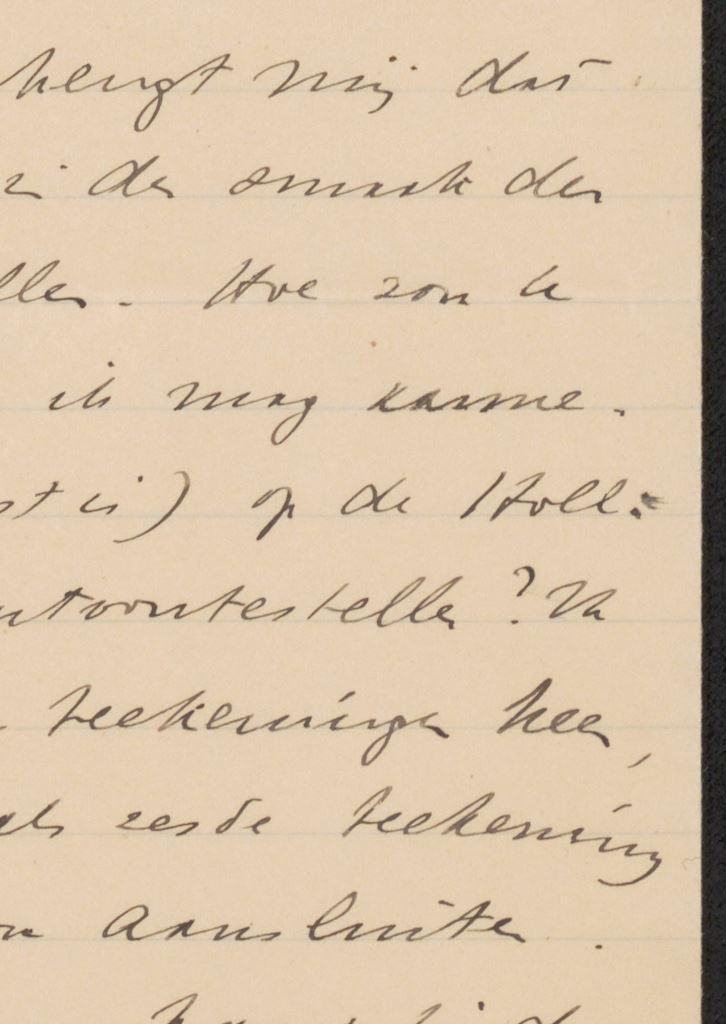 hengt mij dat
in de smaak der
llen. Hoe zou U
ik mag
st is) op de Holl:
tentoontestellen? Ik
teekeningen heen,
als zesde teekening
aansluiten.